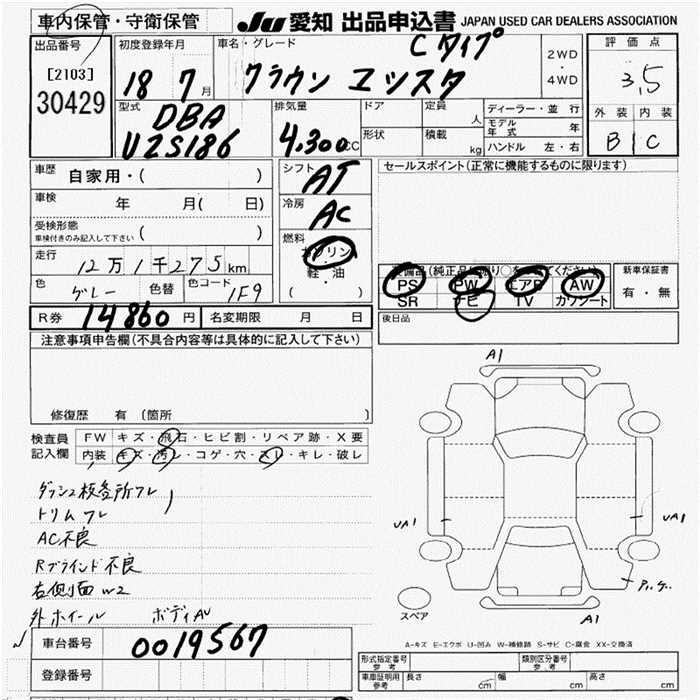 車内保管・守衛保管
JU 愛知 出品申込書 JAPAN USED CAR DEALERS ASSOCIATION
出品番号
[2103]
30429
初度登録年月
18 7月
車名・グレード
クラウン Cタイプ
2WD
・
4WD
評価点
3.5
外装 内装
B C
型式
DBA
UZS186
排気量
4,300cc
ドア
形状
定員 人
積載 kg
ディーラー・並行
モデル年式 年
ハンドル 左・右
車歴 自家用・( )
車検 年 月( 日)
受検形態
車検付きのみ記入して下さい ( )
走行 12万1千275km
色 グレー 色替 色コード 1F9
シフト AT
冷房 AC
燃料
ガソリン
軽・油
( ・ )
セールスポイント(正常に機能するものに限ります)
PS PW エアB AW
SR ナビ TV カワシート
新車保証書
有・無
後日品
R券 14860円 名変期限 月 日
注意事項申告欄(不具合内容等は具体的に記入して下さい)
修復歴 有(箇所 )
検査員記入欄
FW キズ・飛石・ヒビ割・リペア跡・X要
内装 キズ・汚レ・コゲ・穴・スレ・キレ・破レ
トリム フレ
AC不良
Rブラインド不良
右側面 W2
外ホイール ボディAU
A1
UA1
UA1
A1
スペア
A-キズ E-エクボ U-凹み W-補修跡 S-サビ C-腐食 XX-交換済
車台番号 0019567
登録番号
形式指定番号 参考
類別区分番号 参考
車庫証明用 参考 長さ cm 幅 cm 高さ cm